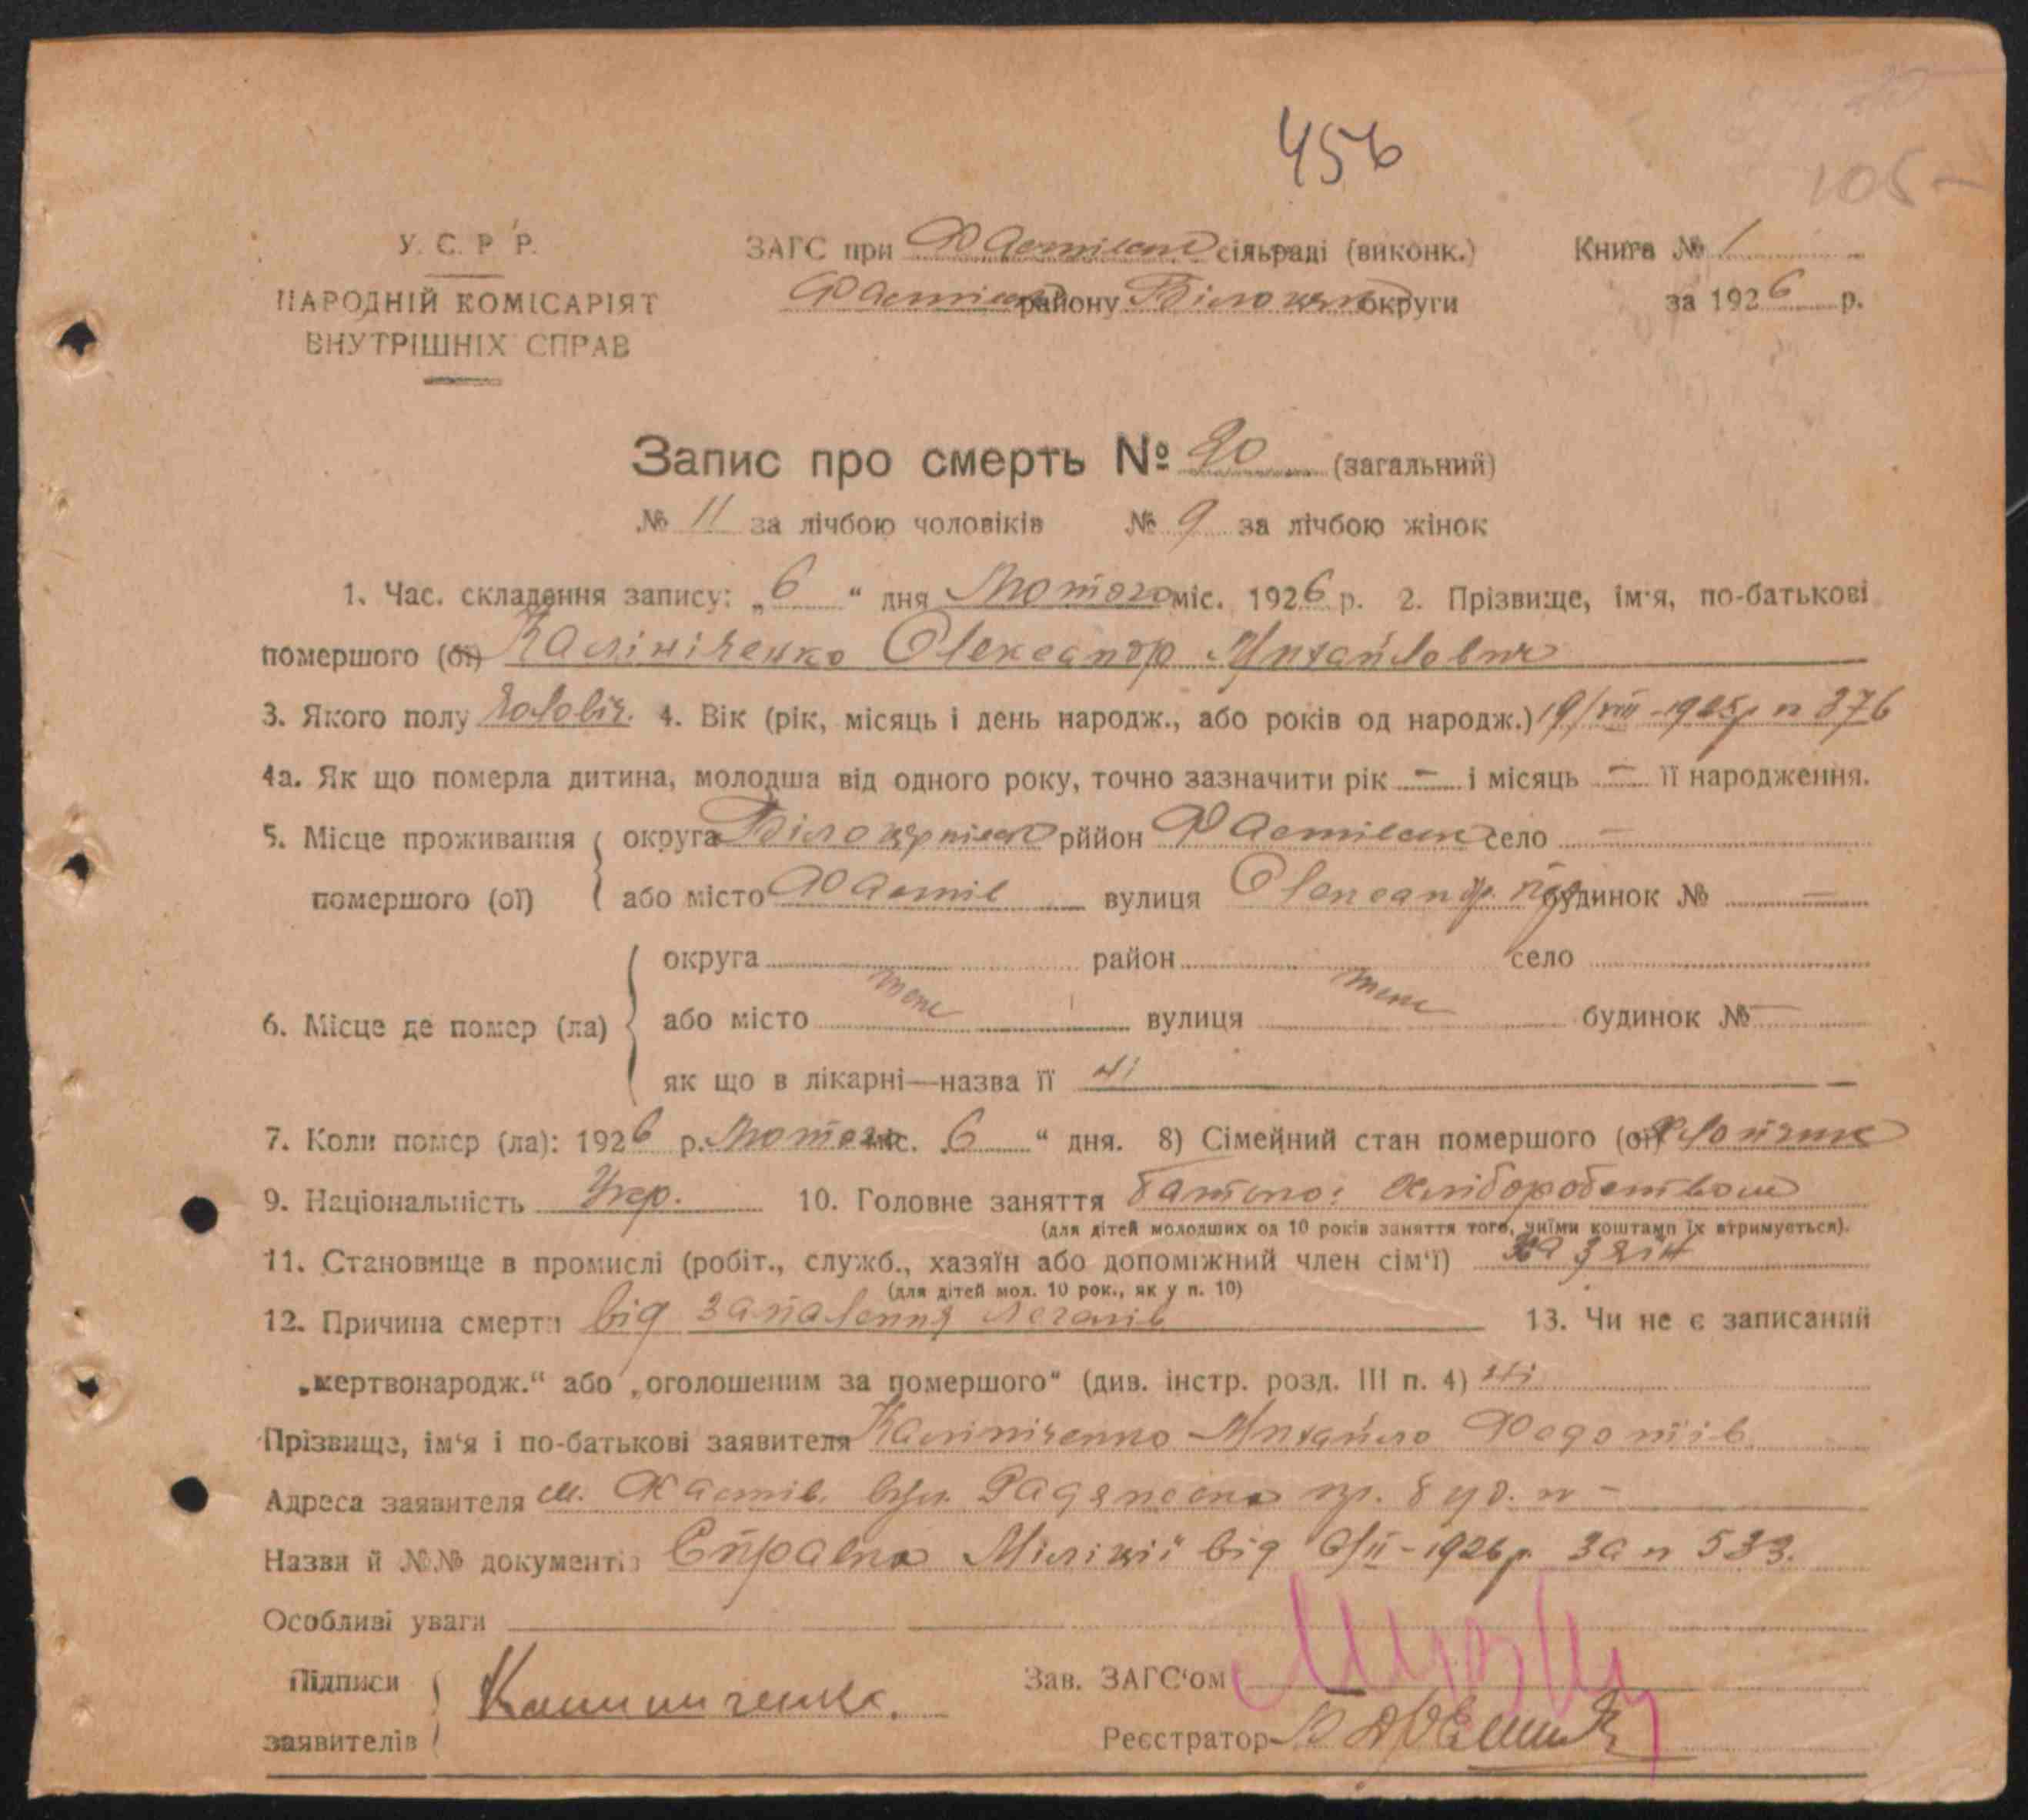 456
105-
У. С. Р Р.
ЗАГС при Фастівськ сільраді (виконк.)
Книга № 1
НАРОДНІЙ КОМІСАРІЯТ
ВНУТРІШНІХ СПРАВ
Фастівськ району Білоцерк округи
за 1926 р.
Запис про смерть № 20 (загальний)
№ 11 за лічбою чоловіків № 9 за лічбою жінок
1. Час. складення запису: „6“ дня Лютого міс. 1926 р. 2. Прізвище, ім'я, по-батькові
помершого (ої) Калініченко Олександр Михайлович
3. Якого полу Чоловіч. 4. Вік (рік, місяць і день народж., або років од народж.) 19/VIII-1925р n 376
4а. Як що померла дитина, молодша від одного року, точно зазначити рік — і місяць — її народження.
5. Місце проживання помершого (ої)
округа Білоцерківськ рййон Фастівськ село —
або місто Фастів вулиця Олександр. будинок № —
6. Місце де помер (ла)
округа район село
або місто теж вулиця теж будинок № —
як що в лікарні—назва її ні
7. Коли помер (ла): 1926 р. Лютого міс. 6 “ дня. 8) Сімейний стан помершого (ої) Хлопчик
9. Національність Укр. 10. Головне заняття батько: хліборобством
(для дітей молодших од 10 років заняття того, чиїми коштами їх втримується).
11. Становище в промислі (робіт., служб., хазяїн або допоміжний член сім'ї) хазяїн
(для дітей мол. 10 рок., як у п. 10)
12. Причина смерти від запалення легенів 13. Чи не є записаний
„мертвонародж.“ або „оголошеним за помершого“ (див. інстр. розд. III п. 4) ні
Прізвище, ім'я і по-батькові заявителя Калініченко Михайло Федотів.
Адреса заявителя м. Фастів. вул. Радянська буд. n —
Назви й №№ документів Справка Міліції від 6/II-1926р. за n 533.
Особливі уваги
Підписи заявителів Калиниченко.
Зав. ЗАГС'ом
Реєстратор